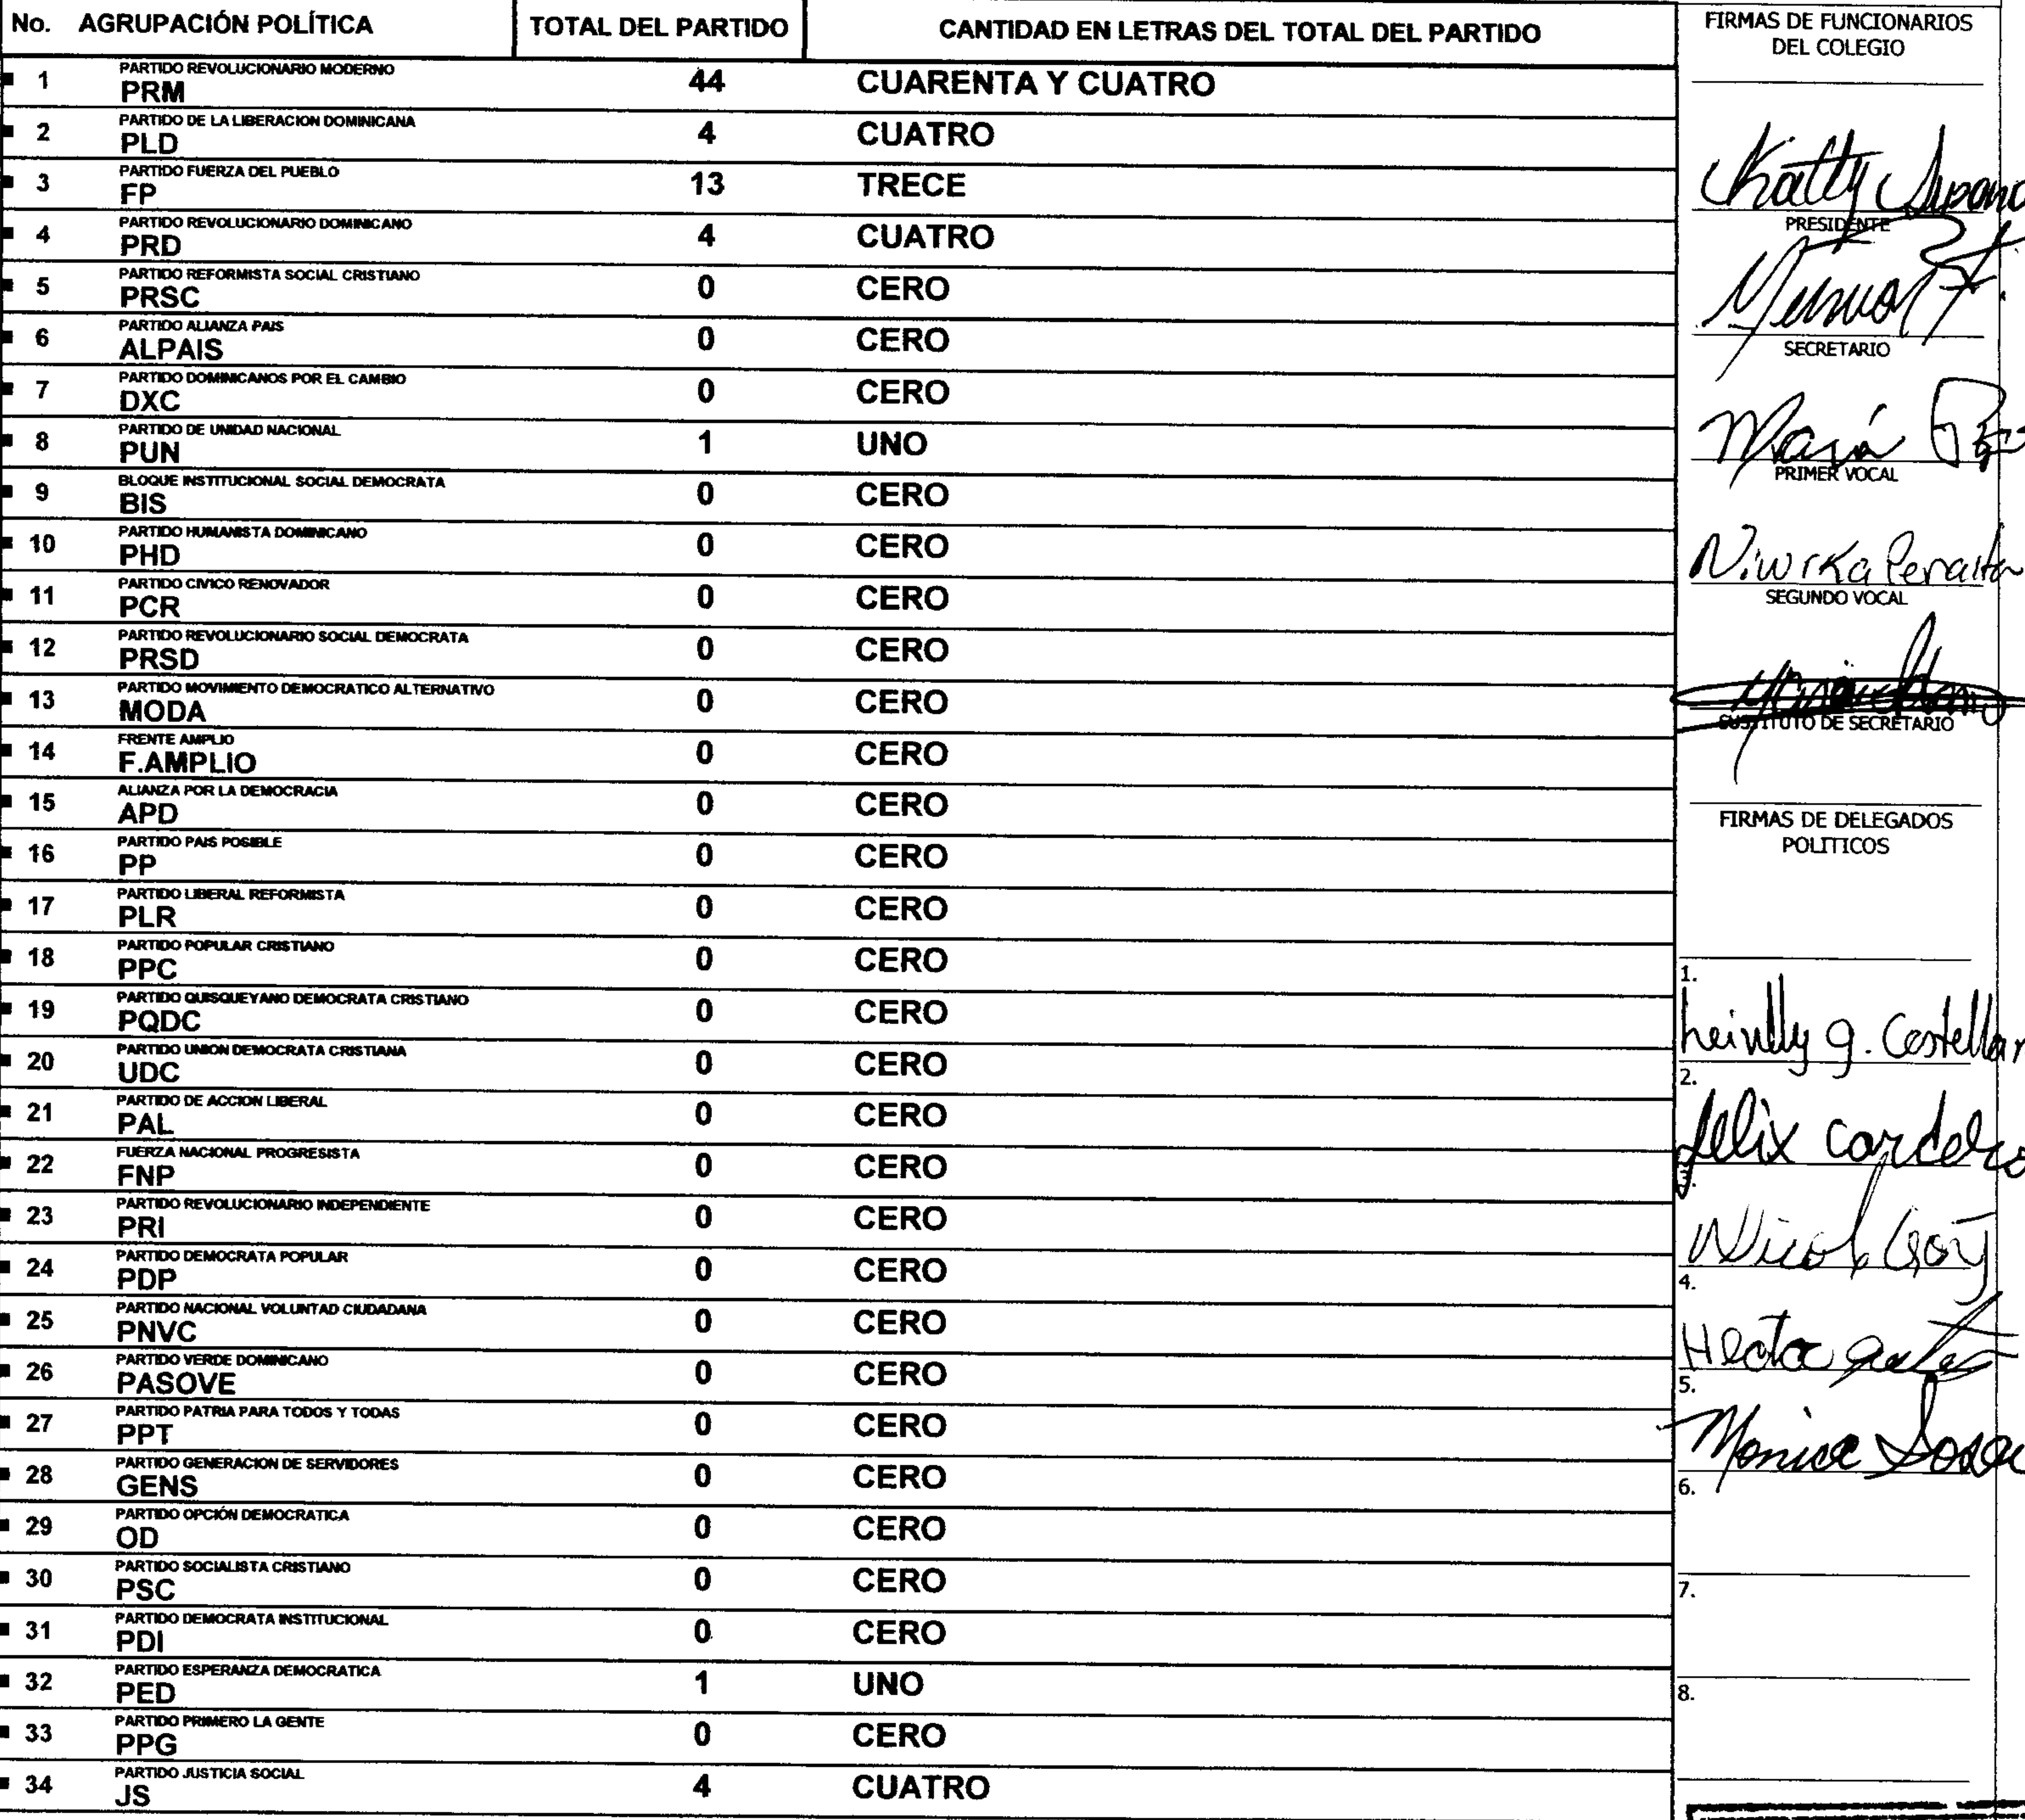 No. AGRUPACIÓN POLÍTICA TOTAL DEL PARTIDO CANTIDAD EN LETRAS DEL TOTAL DEL PARTIDO
PARTIDO REVOLUCIONARIO MODERNO
1 PRM 44 CUARENTA Y CUATRO
PARTIDO DE LA LIBERACION DOMINICANA
2 PLD 4 CUATRO
PARTIDO FUERZA DEL PUEBLO
3 FP 13 TRECE
PARTIDO REVOLUCIONARIO DOMINICANO
4 PRD 4 CUATRO
PARTIDO REFORMISTA SOCIAL CRISTIANO
5 PRSC 0 CERO
PARTIDO ALIANZA PAIS
6 ALPAIS 0 CERO
PARTIDO DOMINICANOS POR EL CAMBIO
7 DXC 0 CERO
PARTIDO DE UNIDAD NACIONAL
8 PUN 1 UNO
BLOQUE INSTITUCIONAL SOCIAL DEMOCRATA
9 BIS 0 CERO
PARTIDO HUMANISTA DOMINICANO
10 PHD 0 CERO
PARTIDO CIVICO RENOVADOR
11 PCR 0 CERO
PARTIDO REVOLUCIONARIO SOCIAL DEMOCRATA
12 PRSD 0 CERO
PARTIDO MOVIMIENTO DEMOCRATICO ALTERNATIVO
13 MODA 0 CERO
FRENTE AMPLIO
14 F.AMPLIO 0 CERO
ALIANZA POR LA DEMOCRACIA
15 APD 0 CERO
PARTIDO PAIS POSIBLE
16 PP 0 CERO
PARTIDO LIBERAL REFORMISTA
17 PLR 0 CERO
PARTIDO POPULAR CRISTIANO
18 PPC 0 CERO
PARTIDO QUISQUEYANO DEMOCRATA CRISTIANO
19 PQDC 0 CERO
PARTIDO UNION DEMOCRATA CRISTIANA
20 UDC 0 CERO
PARTIDO DE ACCION LIBERAL
21 PAL 0 CERO
FUERZA NACIONAL PROGRESISTA
22 FNP 0 CERO
PARTIDO REVOLUCIONARIO INDEPENDIENTE
23 PRI 0 CERO
PARTIDO DEMOCRATA POPULAR
24 PDP 0 CERO
PARTIDO NACIONAL VOLUNTAD CIUDADANA
25 PNVC 0 CERO
PARTIDO VERDE DOMINICANO
26 PASOVE 0 CERO
PARTIDO PATRIA PARA TODOS Y TODAS
27 PPT 0 CERO
PARTIDO GENERACION DE SERVIDORES
28 GENS 0 CERO
PARTIDO OPCIÓN DEMOCRATICA
29 OD 0 CERO
PARTIDO SOCIALISTA CRISTIANO
30 PSC 0 CERO
PARTIDO DEMOCRATA INSTITUCIONAL
31 PDI 0 CERO
PARTIDO ESPERANZA DEMOCRATICA
32 PED 1 UNO
PARTIDO PRIMERO LA GENTE
33 PPG 0 CERO
PARTIDO JUSTICIA SOCIAL
34 JS 4 CUATRO
FIRMAS DE FUNCIONARIOS
DEL COLEGIO
Katty
PRESIDENTE
SECRETARIO
María
PRIMER VOCAL
Niwrka Peralta
SEGUNDO VOCAL
SUSTITUTO DE SECRETARIO
FIRMAS DE DELEGADOS
POLITICOS
1.
g. Castellan
2.
felix cordero
3.
Nicol
4.
5.
Monica Sosa
6.
7.
8.